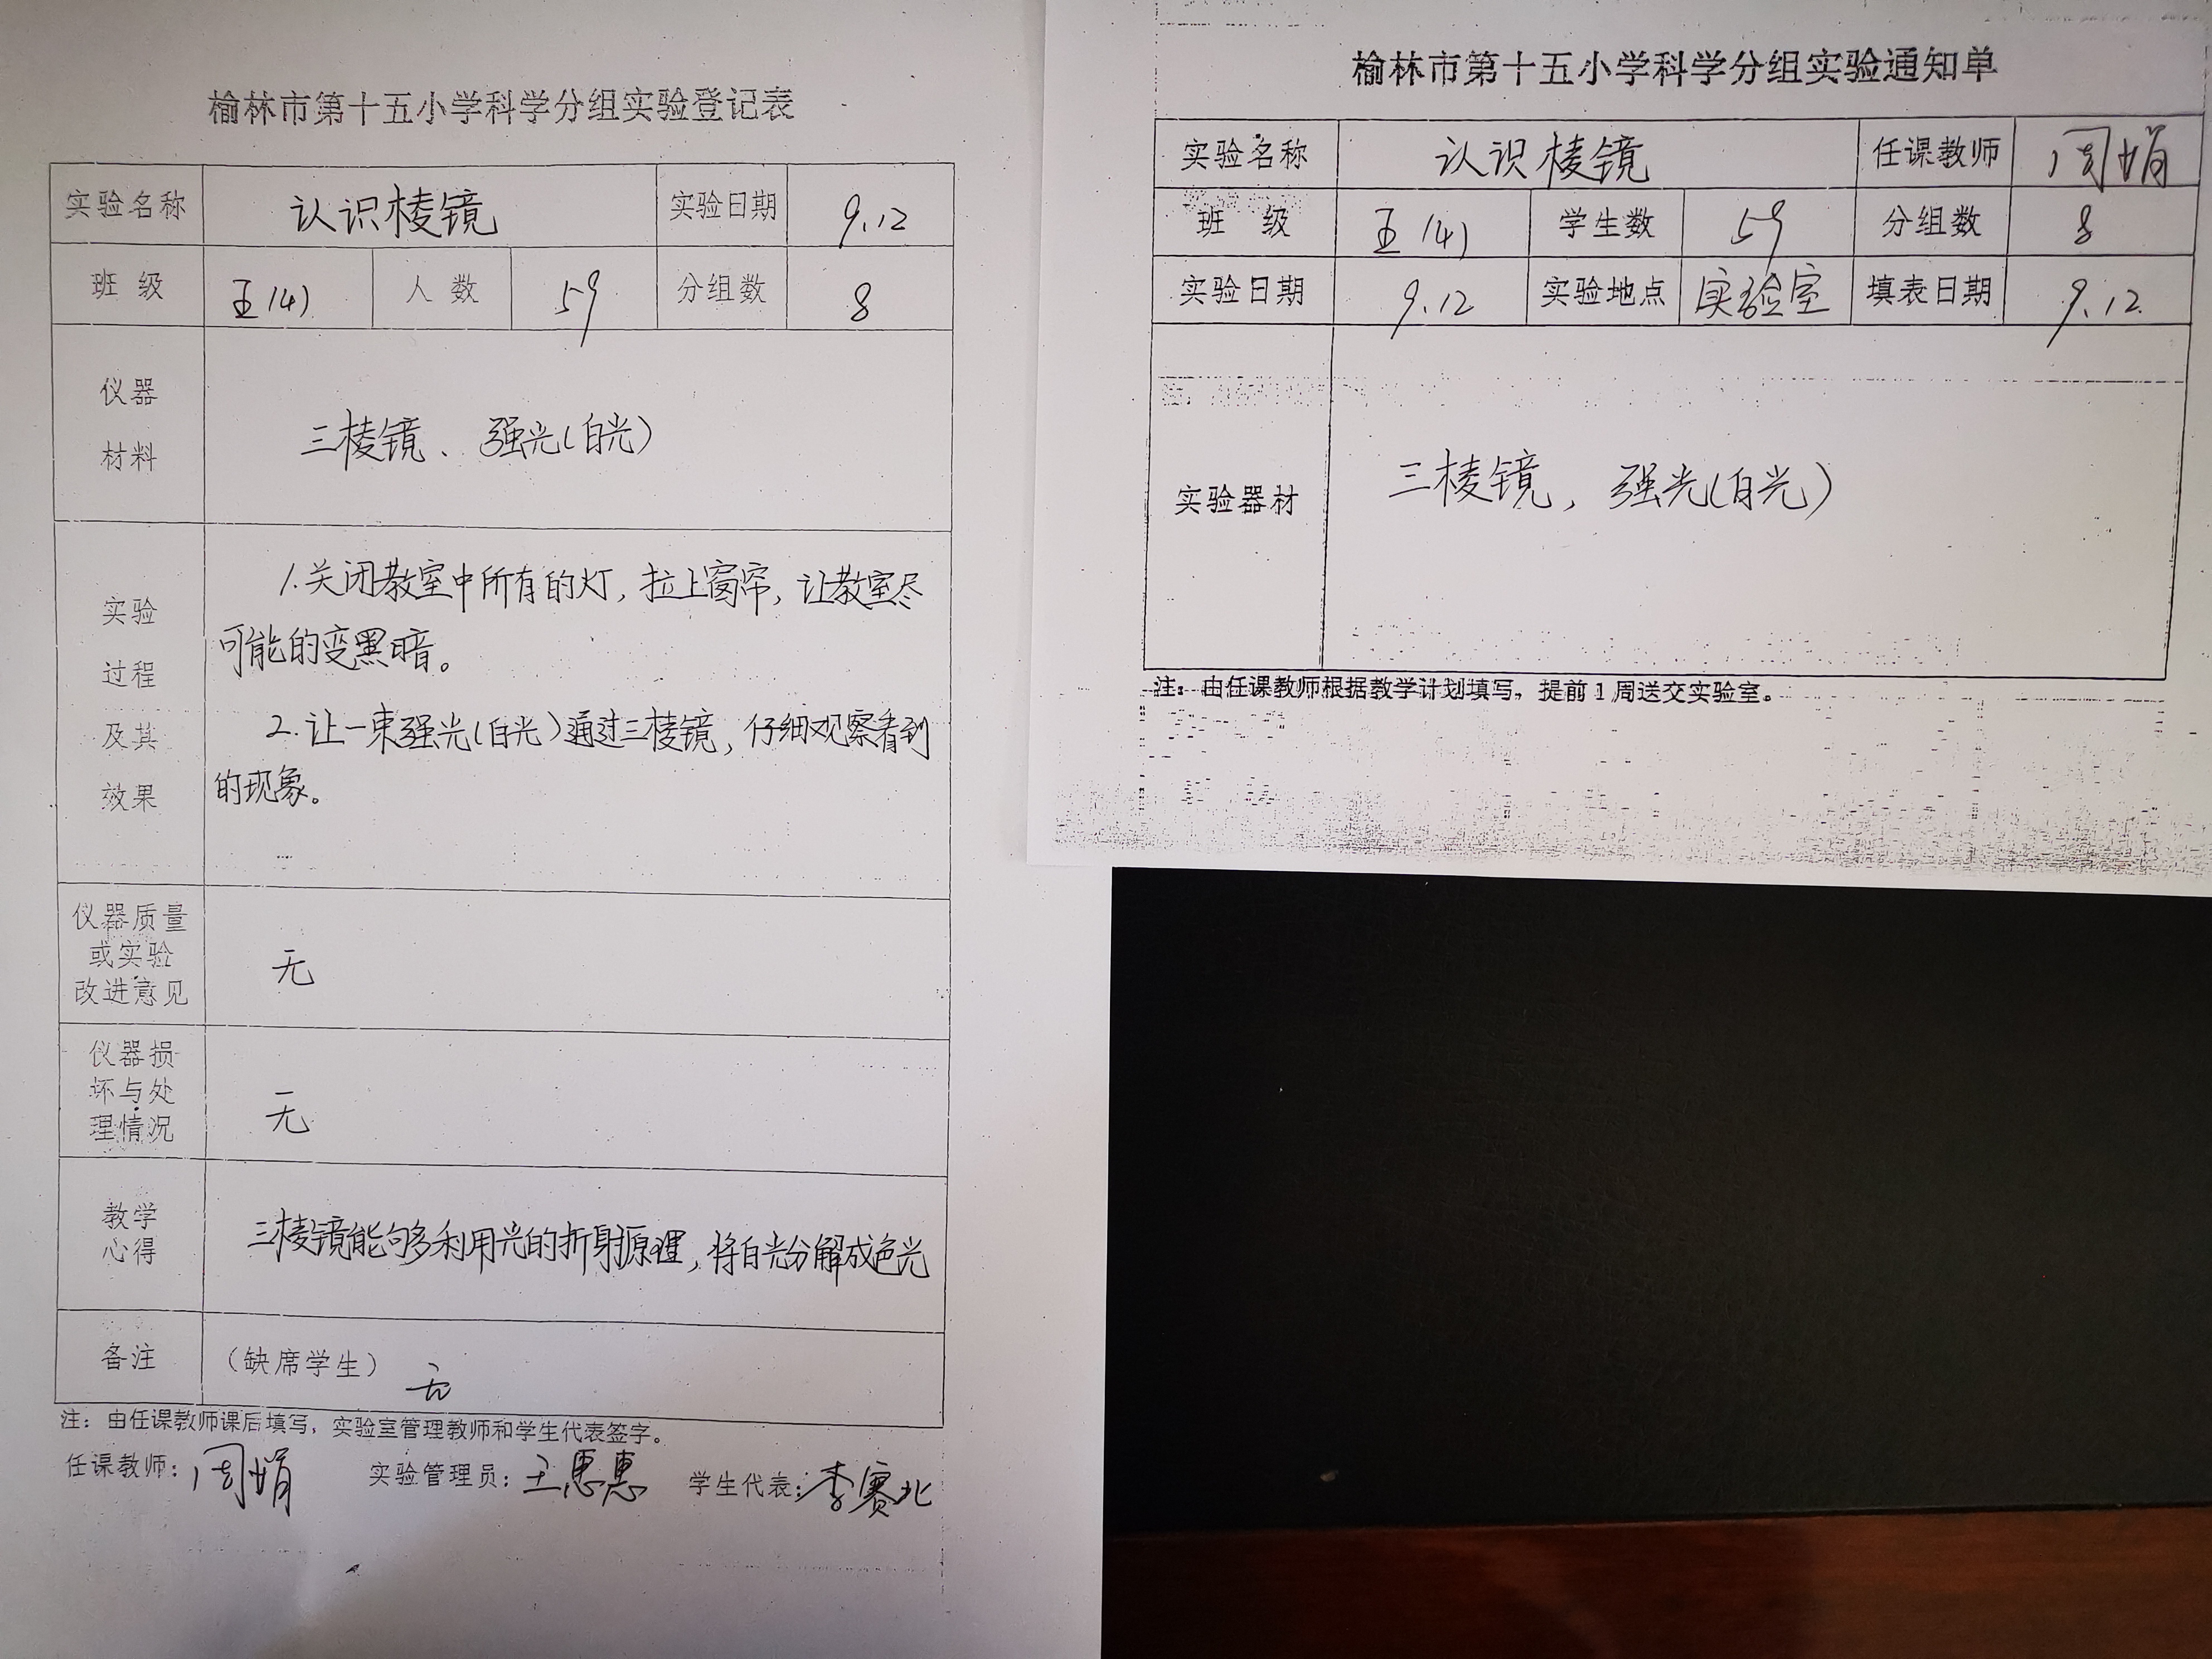 榆林市第十五小学科学分组实验登记表
实验名称 认识棱镜 实验日期 9.12
班 级 五(4) 人 数 59 分组数 8
仪器
材料
三棱镜、强光(白光)
实验
过程
及其
效果
1.关闭教室中所有的灯,拉上窗帘,让教室尽
可能的变黑暗。
2.让一束强光(白光)通过三棱镜,仔细观察看到
的现象。
仪器质量
或实验
改进意见
无
仪器损
坏与处
理情况
无
教学
心得
三棱镜能够多利用光的折射原理,将白光分解成色光
备注 (缺席学生) 无
注:由任课教师课后填写,实验室管理教师和学生代表签字。
任课教师:周娟 实验管理员:王惠惠 学生代表:李赛北
榆林市第十五小学科学分组实验通知单
实验名称 认识棱镜 任课教师 周娟
班 级 五(4) 学生数 59 分组数 8
实验日期 9.12 实验地点 实验室 填表日期 9.12
实验器材 三棱镜,强光(白光)
注:由任课教师根据教学计划填写,提前1周送交实验室。